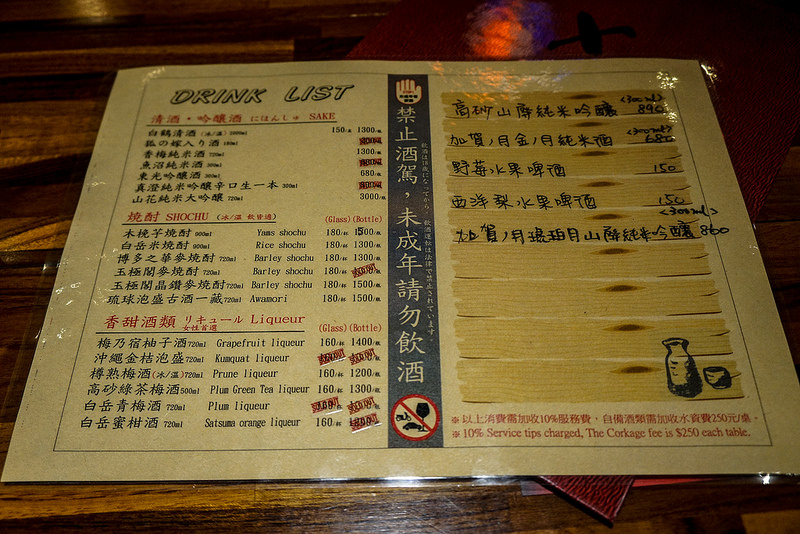 DRINK LIST
清酒・吟釀酒 にほんしゅ SAKE
白鶴清酒 (冰/溫) 1000ml 150/杯 1300/瓶
狐の嫁入り酒 180ml
香梅純米酒 720ml 1300/瓶
魚沼純米酒 300ml
東光吟釀酒 300ml 680/瓶
真澄純米吟釀辛口生一本 300ml
山花純米大吟釀 720ml 3000/瓶
燒酎 SHOCHU (冰/溫 飲皆適) (Glass) (Bottle)
木挽芋燒酎 900ml Yams shochu 180/杯 1500/瓶
白岳米燒酎 900ml Rice shochu 180/杯 1300/瓶
博多之華麥燒酎 720ml Barley shochu 180/杯 1300/瓶
玉極閣麥燒酎 720ml Barley shochu 180/杯 SOLD OUT
玉極閣晶鑽麥燒酎 720ml Barley shochu 180/杯 1500/瓶
琉球泡盛古酒一藏 720ml Awamori 180/杯 1500/瓶
香甜酒類 リキュール Liqueur
女性首選 (Glass) (Bottle)
梅乃宿柚子酒 720ml Grapefruit liqueur 160/杯 1400/瓶
沖繩金桔泡盛 720ml Kumquat liqueur SOLD OUT SOLD OUT
樽熟梅酒 (冰/溫) 720ml Prune liqueur 160/杯 1200/瓶
高砂綠茶梅酒 500ml Plum Green Tea liqueur 160/杯 1300/瓶
白岳青梅酒 720ml Plum liqueur SOLD OUT SOLD OUT
白岳蜜柑酒 720ml Satsuma orange liqueur 160/杯
禁止酒駕，未成年請勿飲酒
飲酒は18歳になってから 飲酒運転は法律で禁止されています
高砂山廃純米吟釀 (300ml) 890
加賀ノ月金ノ月純米酒 (300ml) 680
野莓水果啤酒 150
西洋梨水果啤酒 150
加賀ノ月琥珀月山廃純米吟釀 (300ml) 860
※以上消費需加收10%服務費，自備酒類需加收水資費250元/桌。
※10% Service tips charged, The Corkage fee is $250 each table.